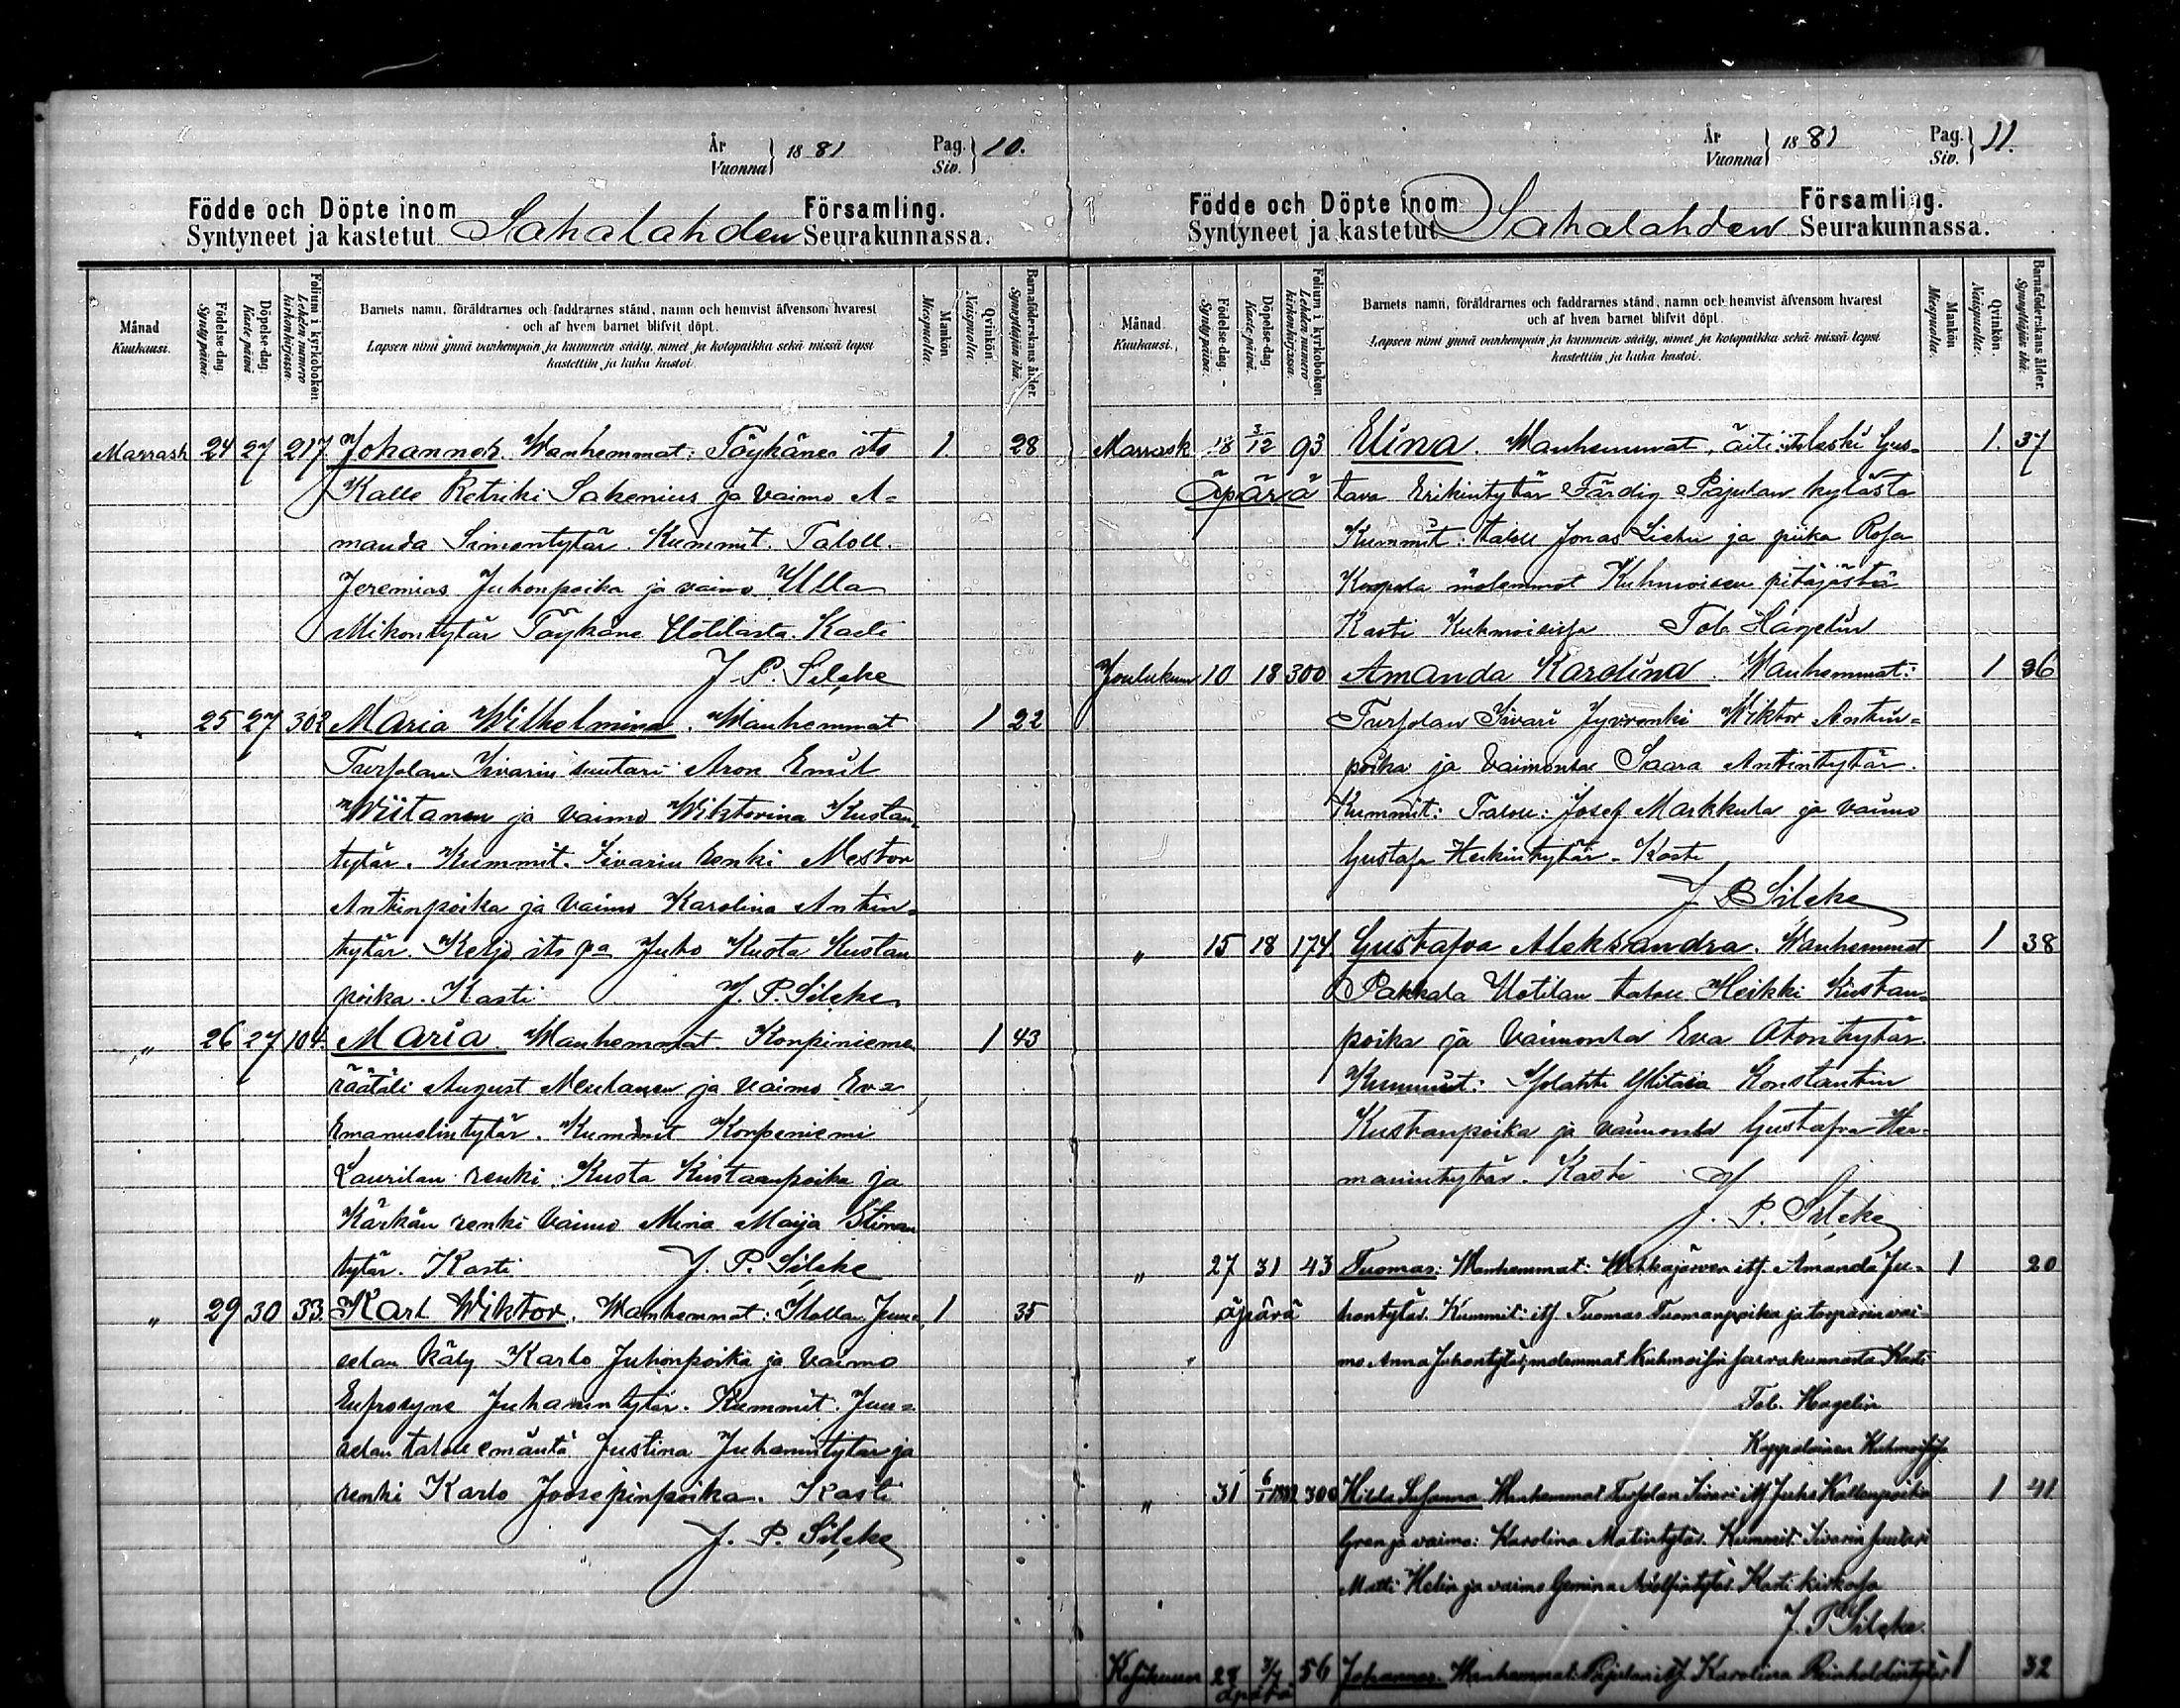 År
Vuonna } 1881 Pag.
Siv. } 10.
Födde och Döpte inom Församling.
Syntyneet ja kastetut Sahalahden Seurakunnassa.
Månad
Kuukausi.
Födelse-dag.
Syntypäivä.
Döpelse-dag.
Kastepäivä
Folium i kyrkoboken.
Lehden numero
kirkonkirjassa.
Barnets namn, föräldrarnes och faddrarnes stånd, namn och hemvist äfvensom hvarest
och af hvem barnet blifvit döpt.
Lapsen nimi ynnä vanhempain ja kummein sääty, nimet ja kotopaikka sekä missä lapsi
kastettiin ja kuka kastoi.
Mankön
Miespuolia.
Qvinkön.
Naispuolia.
Barnaföderskans ålder.
Synnyttäjän ikä.
Marrask 24 27 217 Johannes. Wanhemmat: Töykänen its 1 28
Kalle Retriki Sakenius ja vaimo A=
manda Simontytär. Kummit. Taloll.
Jeremias Juhonpoika ja vaimo Ulla
Mikontytär Töykäne Uotilasta. Kasti
J. P. Silcke
" 25 27 302 Maria Wilhelmina. Wanhemmat 1 22
Turpolan Iivarin suutari Aron Emil
Wiitanen ja vaimo Wiktorina Kustan=
tytär. Kummit. Iivarin renki Nestor
Antinpoika ja vaimo Karolina Antin=
tytär. Keljo its pa Juho Kusta Kustan
poika. Kasti J. P. Silcke
" 26 27 104. Maria. Wanhemmat. Konpinieme 1 43
räätäli August Neulanen ja vaimo Eva
Emanuelintytär. Kummit Konpeniemi
Laurilan renki Kusta Kustaanpoika ja
Kärkän renki vaimo Mina Maija Stinan
tytär. Kasti J. P. Silcke
" 29 30 33. Karl Wiktor. Wanhemmat: Juu= 1 35
selan Karlo Juhonpoika ja vaimo
Eufrosyne Juhanintytär. Kummit. Juu=
selan talon emäntä Justina Juhanintytär ja
renki Karlo Joosepinpoika. Kasti
J. P. Silcke
År
Vuonna } 1881 Pag.
Siv. } 11.
Födde och Döpte inom Församling.
Syntyneet ja kastetut Sahalahden Seurakunnassa.
Månad
Kuukausi.
Födelse-dag.
Syntypäivä.
Döpelse-dag.
Kastepäivä.
Folium i kyrkoboken.
Lehden numero
kirkonkirjassa.
Barnets namn, föräldrarnes och faddrarnes stånd, namn och hemvist äfvensom hvarest
och af hvem barnet blifvit döpt.
Lapsen nimi ynnä vanhempain ja kummein sääty, nimet ja kotopaikka sekä missä lapsi
kastettiin ja kuka kastoi.
Mankön
Miespuolia.
Qvinkön.
Naispuolia.
Barnaföderskans ålder.
Synnyttäjän ikä.
Marrask 18 3/12 93 Elina. Wanhemmat, äiti: its leski Gus= 1. 37
äpärä tava Erikintytär Färdig Pajulan kylästä
Kummit: taloll Jonas ja piika Rosa
molemmat Kuhmoisen pitäjästä
Kasti Kuhmoisissa Tob. Hagelin
Joulukuu 10 18 300 Amanda Karolina. Wanhemmat: 1 36
Turpolan Iivari Jyvrenki Wiktor Antin=
poika ja vaimonsa Saara Antintytär.
Kummit: Taloll: Josef Markkula ja vaimo
Gustafa Heikintytär. Kasti
J. P. Silcke
" 15 18 174. Gustafva Aleksandra. Wanhemmat 1 38
Pakkala Uotilan taloll Heikki Kustan=
poika ja vaimonsa Eva Atontytär
Kummit: Konstantin
Kustanpoika ja vaimonsa Gustafva Her=
manintytär. Kasti
J. P. Silcke
" 27 31 43 Tuomas: Wanhemmat: Wehkajärven its. Amanda Ju= 1 20
äpärä hontytär. Kummit: its Tuomas Tuomanpoika ja torparin vai=
mo Anna Juhontytär, molemmat Kuhmoisin seurakunnasta Kasti
Tob. Hagelin
Kappalainen Kuhmoisissa
" 31 6/1 1882 300 Hilda Susanna Wanhemmat Turpolan Iivari its Juho Kallenpoika 1 41
Gren ja vaimo: Karolina Matintytär. Kummit: Iivarin suutari
Matti Helin ja vaimo Gemina Adolfintytär Kasti kirkossa
J. P. Silcke.
Kesäkuun 28 3/7 56 Johannes. Wanhemmat: Pajulan its. Karolina Reinholdintytär 1 32
äpärä